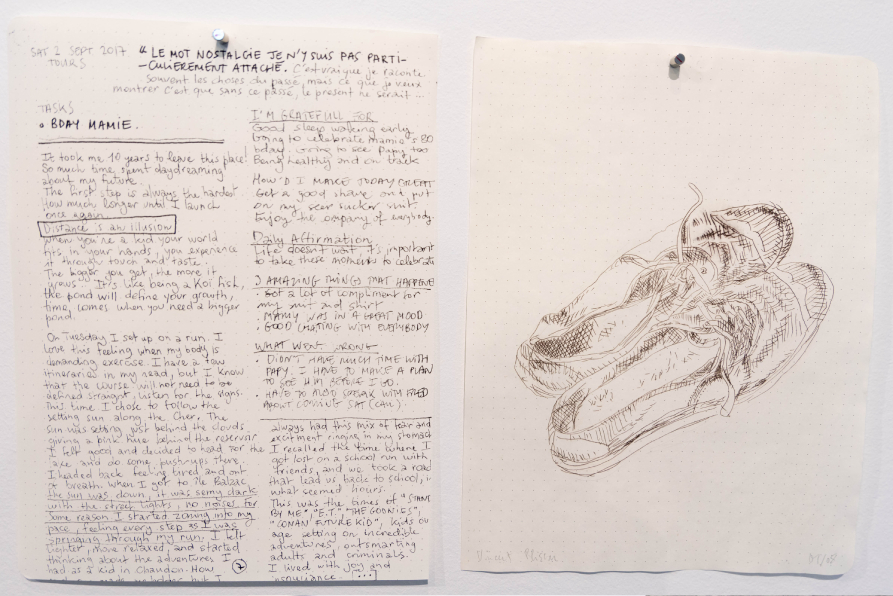 SAT 2 SEPT 2017
TOURS
"LE MOT NOSTALGIE JE N'Y SUIS PAS PARTI-
-CULIEREMENT ATTACHE. C'est vrai que je raconte
souvent les choses du passé, mais ce que je veux
montrer c'est que sans ce passé, le présent ne serait ...
TASKS
• BDAY MAMIE.
It took me 10 years to leave this place!
So much time spent daydreaming
about my future.
The first step is always the hardest.
How much longer until I launch
once again.
Distance is an illusion
When you're a kid your world
fits in your hands, you experience
it through touch and taste.
The bigger you get, the more it
grows. It's like being a Koi fish,
the pond will define your growth,
time comes when you need a bigger
pond.
On Tuesday I set up on a run. I
love this feeling when my body is
demanding exercise. I have a few
itineraries in my head, but I know
that the course will not need to be
defined straight, listen for the signs.
This time I chose to follow the
setting sun along the Cher. The
sun was setting just behind the clouds
giving a pink hue behind the reservoir
I felt good and decided to head for the
lake and do some push-ups there.
I headed back feeling tired and out
of breath. When I got to île Balzac
the sun was down, it was semy dark
with the street lights, no noises for
some reason I started zoning into my
pace, feeling every step as I was
springing through my run. I felt
lighter, more relaxed, and started
thinking about the adventures I
had as a kid in Chandon. How
7
I'M GRATEFULL FOR
Good sleep waking early
Going to celebrate mamie's 80
bday. Going to see Papy too
Being healthy and on track
HOW'D I MAKE TODAY GREAT
Get a good shave and put
on my seer sucker suit.
Enjoy the company of everybody.
Daily Affirmation
Life doesn't wait it's important
to take these moments to celebrate
3 AMAZING THINGS THAT HAPPENE
• Got a lot of compliment for
my suit and shirt
• MAMY WAS IN A GREAT MOOD
• GOOD CHATING WITH EVERYBODY
WHAT WENT WRONG
• DIDN'T HAVE MUCH TIME WITH
PAPY. I HAVE TO MAKE A PLAN
TO SEE HIM BEFORE I GO.
• HAVE TO ALSO SPEAK WITH FRED
ABOUT COMING SAT (CALL).
always had this mix of fear and
excitment ringing in my stomach
I recalled the time where I
got lost on a school run with
friends, and we took a road
that lead us back to school, in
what seemed hours.
This was the times of "STAND
BY ME", "E.T." "THE GOONIES",
"CONAN FUTURE KID", kids our
age setting on incredible
adventures, outsmarting
adults and criminals.
I lived with joy and
insouciance. [...]